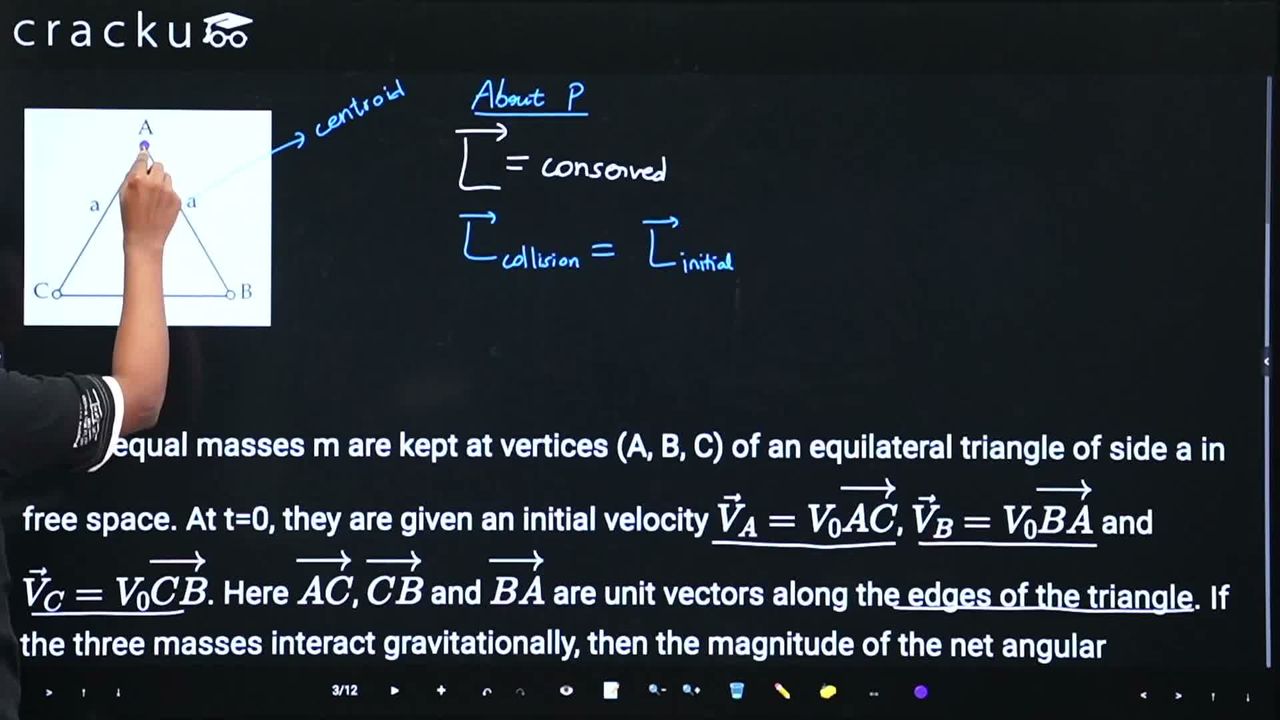 cracku
A
centroid
a
a
C
B
About P
L⃗ = conserved
L⃗ collision = L⃗ initial
equal masses m are kept at vertices (A, B, C) of an equilateral triangle of side a in
free space. At t=0, they are given an initial velocity V⃗_A = V₀A⃗C⃗, V⃗_B = V₀B⃗A⃗ and
V⃗_C = V₀C⃗B⃗. Here A⃗C⃗, C⃗B⃗ and B⃗A⃗ are unit vectors along the edges of the triangle. If
the three masses interact gravitationally, then the magnitude of the net angular
3/12